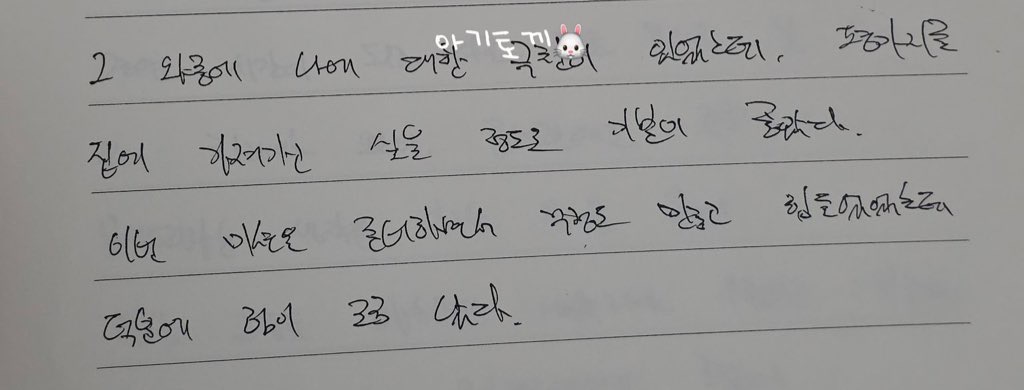 아기토끼🐰
그 와중에 나에 대한 극찬이 있었는데, 평가지를
집에 가져가고 싶을 정도로 기분이 좋았다.
이번 준비하면서 걱정도 많고 힘들었었는데
덕분에 힘이 조금 났다.